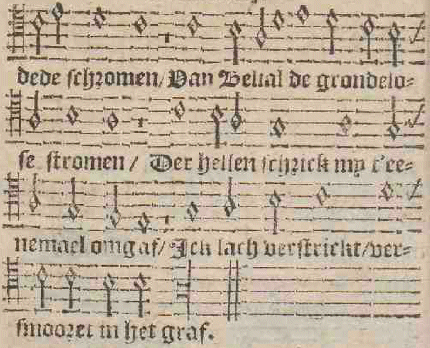 dede schromen/ Van Belial de grondelo-
se stromen / Der hellen schrick my t'ee-
nemael omgaf/ Ick lach verstrickt/ver-
smooret in het graf.